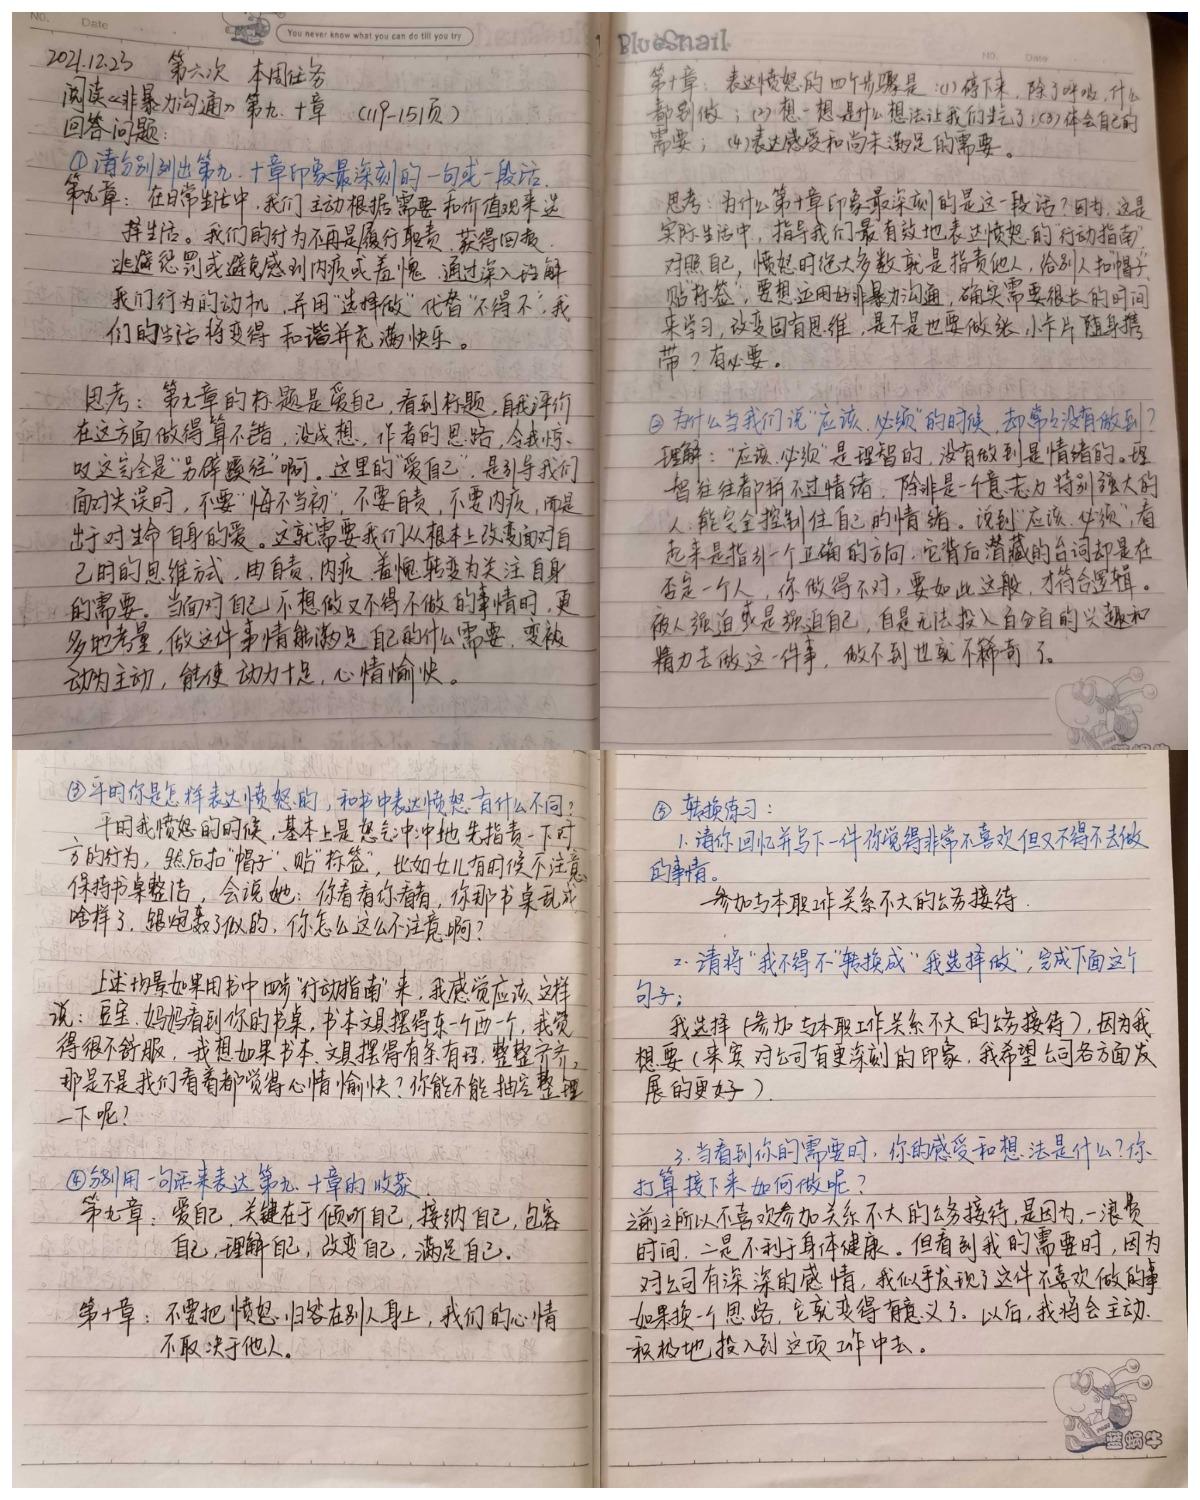 No.
Date
You never know what you can do till you try
2021.12.23 第六次 本周任务
阅读《非暴力沟通》第九、十章 (119-151页)
回答问题:
①请分别列出第九、十章印象最深刻的一句或一段话.
第九章: 在日常生活中,我们主动根据需要和价值观来选
择生活。我们的行为不再是履行职责、获得回报、
逃避惩罚或避免感到内疚或羞愧。通过深入理解
我们行为的动机,并用"选择做"代替"不得不",我
们的生活将变得和谐并充满快乐。
思考: 第九章的标题是爱自己,看到标题,自我评价
在这方面做得算不错,没成想,作者的思路,令我惊
叹这完全是"另辟蹊径"啊。这里的"爱自己",是引导我们
面对失误时,不要"悔不当初",不要自责,不要内疚,而是
出于对生命自身的爱。这就需要我们从根本上改变面对自
己时的思维方式,由自责、内疚、羞愧转变为关注自身
的需要。当面对自己不想做又不得不做的事情时,更
多地考量,做这件事情能满足自己的什么需要,变被
动为主动,能使动力十足,心情愉快。
BlueSnail
No.
Date
第十章: 表达愤怒的四个步骤是:(1)停下来,除了呼吸,什么
都别做;(2)想一想是什么想法让我们生气了;(3)体会自己的
需要;(4)表达感受和尚未满足的需要。
思考:为什么第十章印象最深刻的是这一段话?因为,这是
实际生活中,指导我们最有效地表达愤怒的"行动指南"
对照自己,愤怒时绝大多数就是指责他人,给别人扣"帽子"
贴"标签",要想运用好非暴力沟通,确实需要很长的时间
来学习,改变固有思维,是不是也要做张小卡片随身携
带?有必要。
②为什么当我们说"应该、必须"的时候,却常常没有做到?
理解:"应该、必须"是理智的,没有做到是情绪的。理
智往往都拼不过情绪,除非是一个意志力特别强大的
人,能完全控制住自己的情绪。说到"应该、必须",看
起来是指引一个正确的方向,它背后潜藏的台词却是在
否定一个人,你做得不对,要如此这般,才符合逻辑。
被人强迫或是强迫自己,自是无法投入百分百的兴趣和
精力去做这一件事,做不到也就不稀奇了。
③平时你是怎样表达愤怒的,和书中表达愤怒有什么不同?
平时我愤怒的时候,基本上是怒气冲冲地先指责一下对
方的行为,然后扣"帽子"、贴"标签",比如女儿有时候不注意
保持书桌整洁,会说她:你看看你看看,你那书桌乱成
啥样了,跟炮轰了似的,你怎么这么不注意啊?
上述场景如果用书中四步"行动指南"来,我感觉应该这样
说:豆宝,妈妈看到你的书桌,书本文具摆得东一个西一个,我觉
得很不舒服,我想如果书本、文具摆得有条有理,整整齐齐,
那是不是我们看着都觉得心情愉快?你能不能抽空整理
一下呢?
④分别用一句话来表达第九、十章的收获.
第九章: 爱自己,关键在于倾听自己,接纳自己,包容
自己,理解自己,改变自己,满足自己.
第十章: 不要把愤怒归咎在别人身上,我们的心情
不取决于他人。
⑤ 转换练习:
1. 请你回忆并写下一件你觉得非常不喜欢但又不得不去做
的事情。
参加与本职工作关系不大的公务接待.
2. 请将"我不得不"转换成"我选择做",完成下面这个
句子;
我选择(参加与本职工作关系不大的公务接待),因为我
想要(来宾对公司有更深刻的印象,我希望公司各方面发
展的更好).
3. 当看到你的需要时,你的感受和想法是什么?你
打算接下来如何做呢?
之前之所以不喜欢参加关系不大的公务接待,是因为,一浪费
时间,二是不利于身体健康。但看到我的需要时,因为
对公司有深深的感情,我似乎发现了这件不喜欢做的事
如果换一个思路,它就变得有意义了。以后,我将会主动、
积极地投入到这项工作中去。
蓝蜗牛